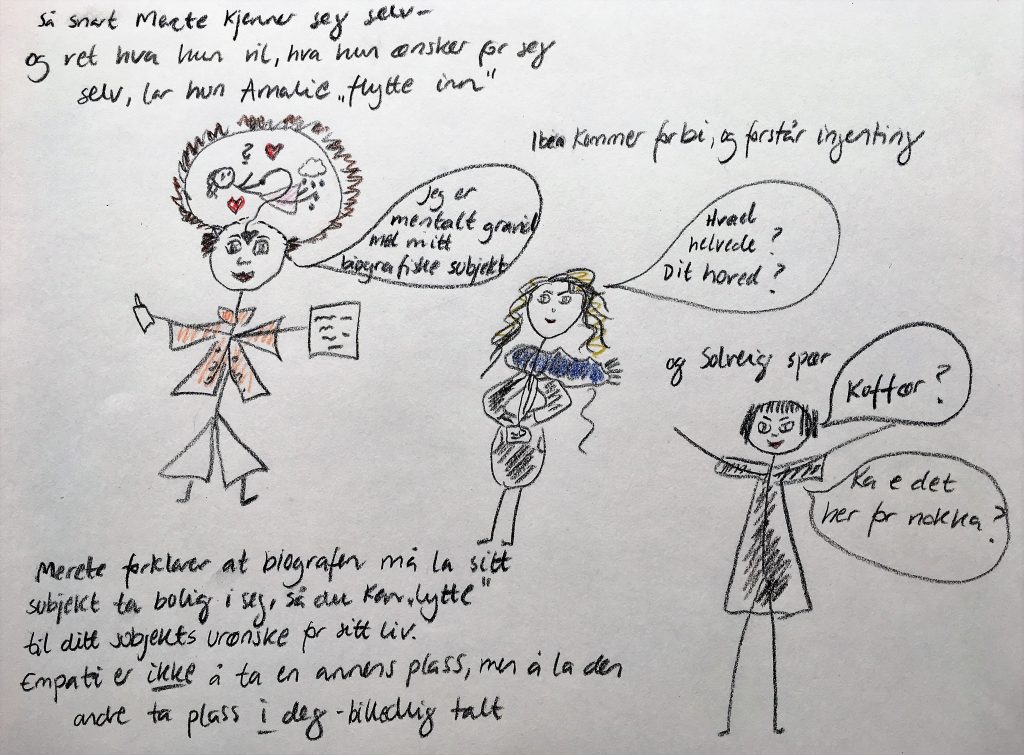 Så snart Merete kjenner seg selv -
og vet hva hun vil, hva hun ønsker for seg
selv, lar hun Amalie „flytte inn"
Iben kommer forbi, og forstår ingenting
Jeg er
mentalt gravid
med mitt
biografiske subjekt
Hvad
helvede?
Dit hoved?
og Solveig spør
Koffør?
Ka e det
her for nokka?
Merete forklarer at biografen må la sitt
subjekt ta bolig i seg, så du kan „lytte"
til ditt subjekts urønske for sitt liv.
Empati er ikke å ta en annens plass, men å la den
andre ta plass i deg - billedlig talt